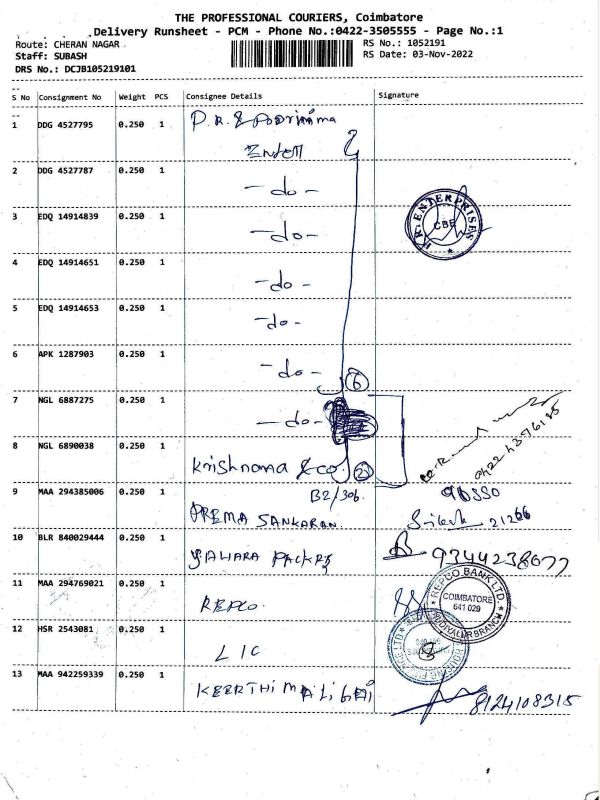 THE PROFESSIONAL COURIERS, Coimbatore
Delivery Runsheet - PCM - Phone No.:0422-3505555 - Page No.:1
Route: CHERAN NAGAR
RS No.: 1052191
Staff: SUBASH
RS Date: 03-Nov-2022
DRS No.: DCJB105219101
S No Consignment No Weight PCS Consignee Details Signature
1 DDG 4527795 0.250 1
2 DDG 4527787 0.250 1 -do-
3 EDQ 14914839 0.250 1 -do-
K.R. ENTERPRISES CBE
4 EDQ 14914651 0.250 1 -do-
5 EDQ 14914653 0.250 1 -do-
6 APK 1287903 0.250 1 -do- 6
7 NGL 6887275 0.250 1 -do-
8 NGL 6890038 0.250 1 Krishnama & co. 2
9 MAA 294385006 0.250 1 B2/306
PREMA SANKARAN.
21266
10 BLR 840029444 0.250 1
11 MAA 294769021 0.250 1 REPCO
REPCO BANK LTD COIMBATORE 641 029
12 HSR 2543081 0.250 1 LIC
13 MAA 942259339 0.250 1 KEERTHI MALIGAI 8124108315